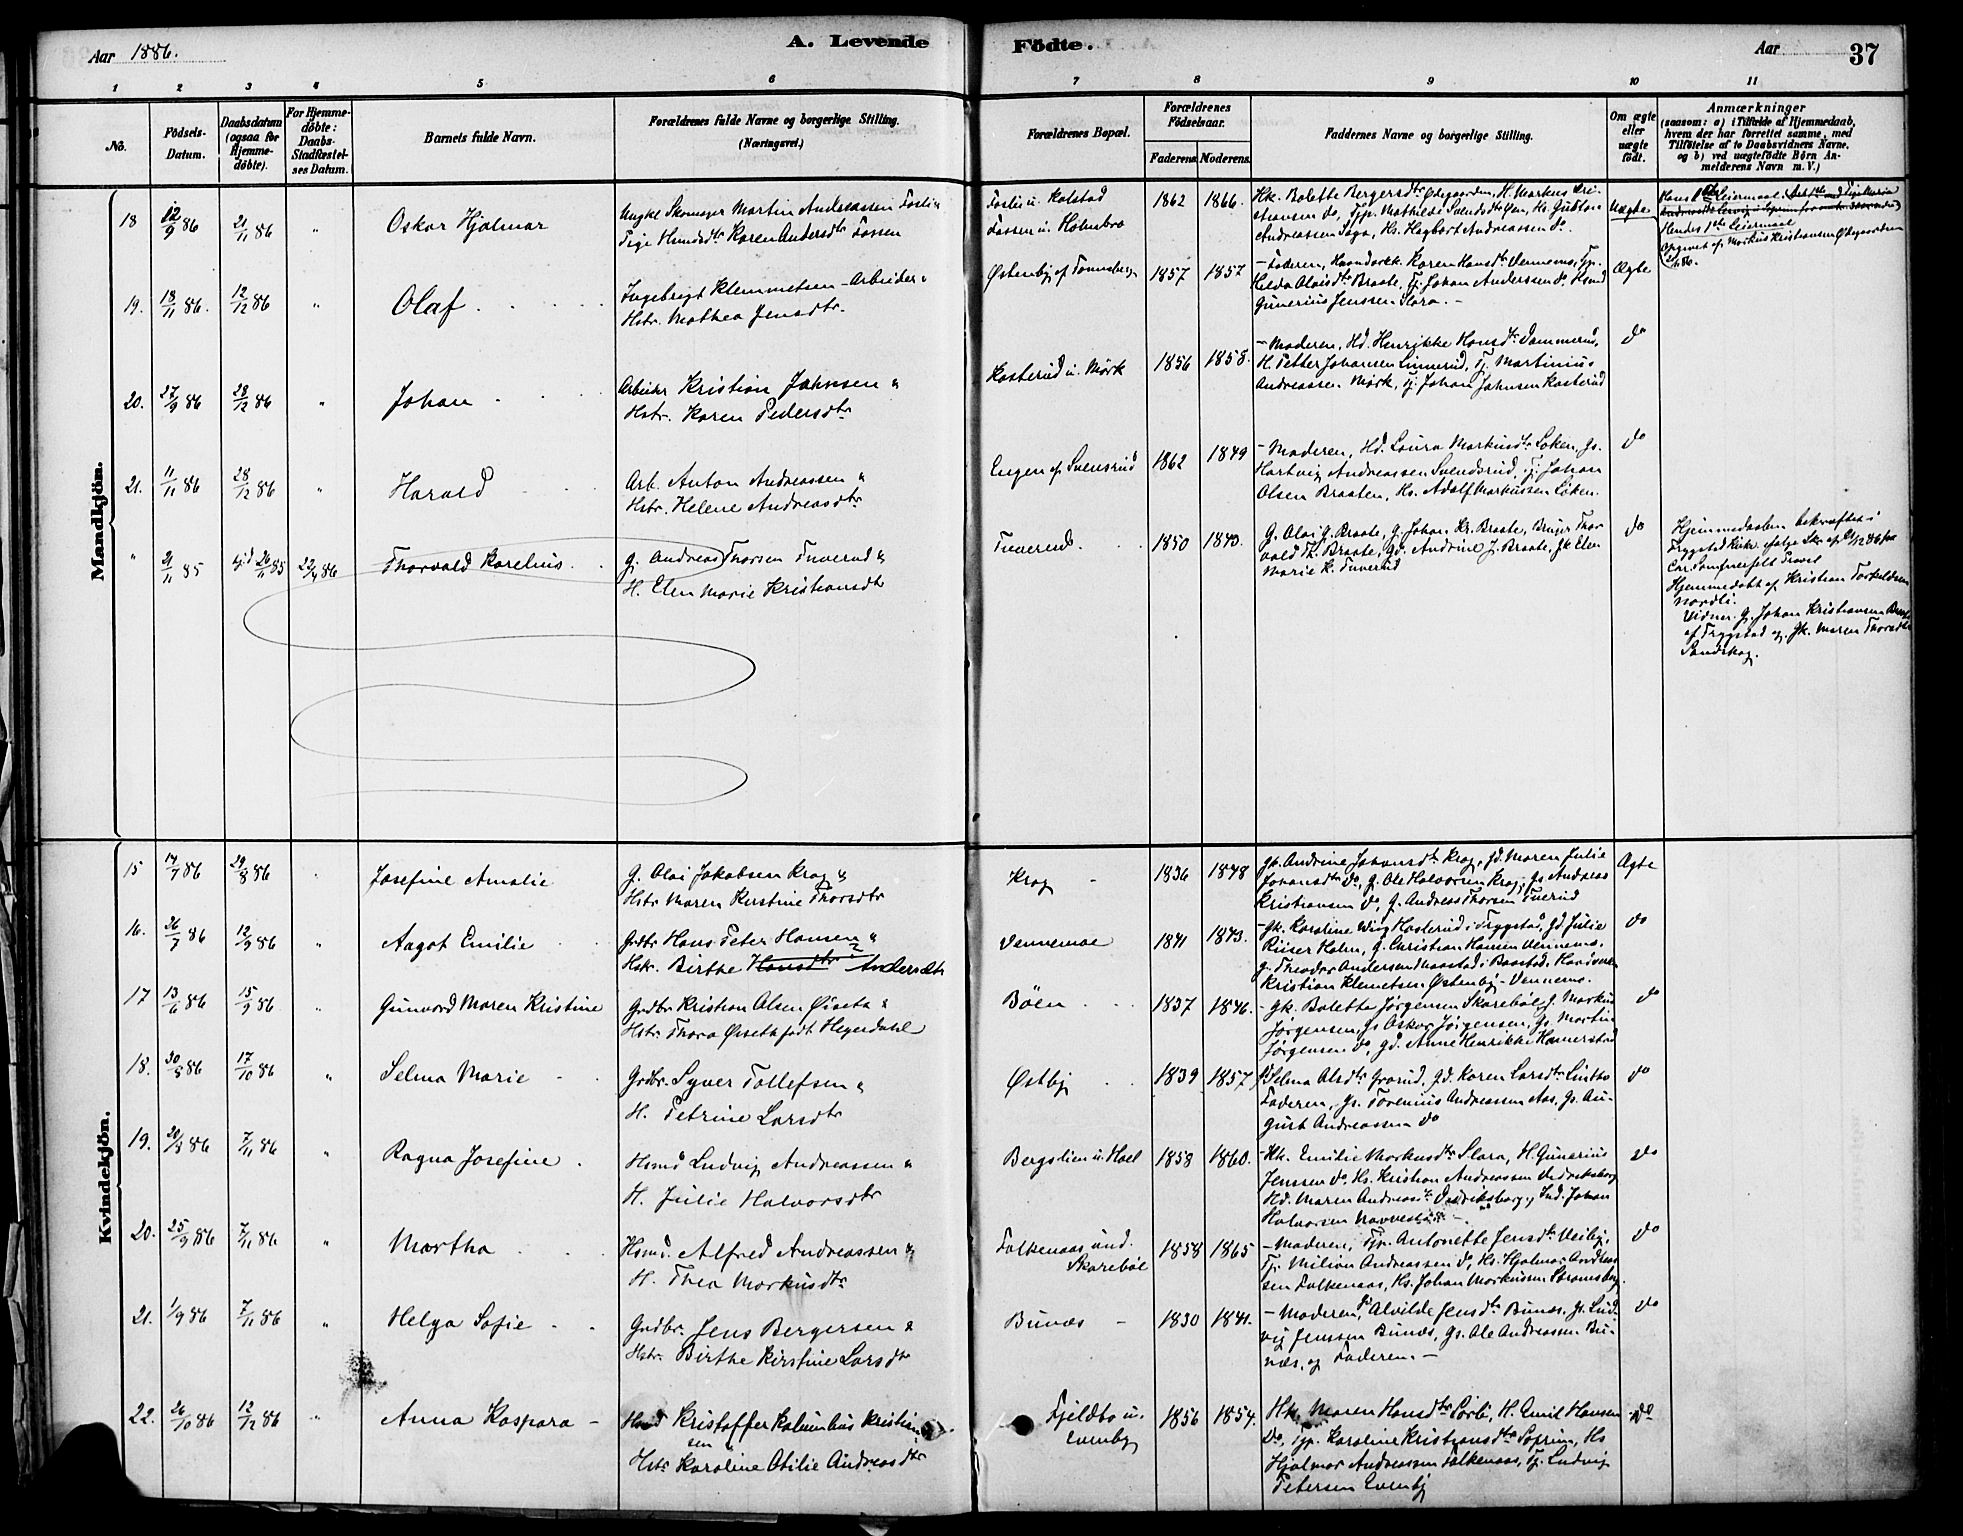 Aar 1886.
A. Levende Födte.
Aar
37
1 2 3 4 5 6 7 8 9 10 11
No.
Födsels-
Datum.
Daabsdatum
(ogsaa for
Hjemme-
döbte).
For Hjemme-
döbte:
Daabs-
Stadfæstel-
ses Datum.
Barnets fulde Navn.
Forældrenes fulde Navne og borgerlige Stilling.
(Næringsvei.)
Forældrenes Bopæl.
Forældrenes
Födselsaar.
Faderens. Moderens.
Faddernes Navne og borgerlige Stilling.
Om ægte
eller
uægte
födt.
Anmærkninger
(saasom: a) i Tilfælde af Hjemmedaab,
hvem der har forrettet samme, med
Tilföielse af to Daabsvidners Navne,
og b) ved uægtefödte Börn An-
melderens Navn m.V.)
Mandkjön.
18 12/9 86 21/11 86 " Oskar Hjalmar
Ungkl Martin Andreassen
Pige Karen Andersdtr Fossen
Fossen u. Holmbro
1862 1866.
Hk. Bolette Bergersdtr Ødegaarden, H. Markus Kri-
stiansen do, Tjp. Mathilde Svendsdtr
Andreassen Haga, Hs. Hagbart Andreassen do.
Uægte
Hans Leiermaal
Hendes 1ste Leiermaal.
Opgivet af Markus Kristiansen Ødegaarden
19. 18/11 86. 12/12 86 " Olaf
Ingebrigt Klemmetsen Arbeider &
Hstr. Mathea Jensdtr.
Østenby af Tonnsberg
1857 1857
- Faderen, Karen Hansdtr Vennemo, Tjp.
Hilda Olaisdtr Braate, Tj. Johan Anderssen do, Hsmd
Gunerius Jenssen Slora. -
Ægte
20. 27/9 86 28/12 86 " Johan
Arbeider Kristian Jahnsen &
Hstr. Karen Pedersdtr
Kasterud u. Mörk
1856 1858.
- Moderen, Hd. Henrikke Hansdtr Dammerud,
H. Petter Johansen Linnerud, Tj. Martinius
Andreassen Mørk, Tj. Johan Jahnsen Kasterud
do
21. 11/11 86 28/12 86 " Harald
Arb. Anton Andreassen &
Hstr. Helene Andreasdtr
Engen af Svensrud
1862 1849
- Moderen, Hd. Laura Markusdtr Löken, Gs.
Hartvig Andreassen Svendsrud, Tj. Johan
Olsen Braaten, Hs. Adolf Markussen Löken.
do
" 2/11 85 26/11 85 22/4 86 Thorvald Karelius
G. Andreas Thorsen Tuverud &
H. Elen Marie Kristiansdtr
Tuverud.
1850 1843.
G. Olai J. Braate, G. Johan Kr. Braate, Bruger Thor-
vald Th. Braate, Gd. Andrine J. Braate, Gk Elen
Marie K. Tuverud
do
Hjemmedaaben bekræftet i
Trygstad Kirke ifølge Skr. af
Hjemmedøbt af Kristian Torkeldsen
Nordli.
Vidner G. Johan Kristiansen Braate
af Trygstad og Gk. Maren Thorsdtr
Sandskog.
Kvindekjön.
15 14/7 86 29/8 86 " Josefine Amalie
G. Olai Jakobsen Krog &
Hstr Maren Kirstine Thorsdtr
Krog
1836 1848
Gk. Andrine Johansdtr Krog, Gd. Maren Julie
Johansdtr do, G. Ole Halvorsen Krog, Gs Andreas
Kristiansen do, G. Andreas Thorsen Tuerud
Ægte
16. 26/7 86 12/9 86 " Aagot Emilie
Grdbr Hans Peter Hansen &
Hstr. Birthe Hansdtr Andersdtr
Vennemoe
1841 1843.
- Gk. Karoline Wiig Hasterud i Trygstad, Gd Julie
Riiser Holm, G. Christian Hansen Vennemo,
G. Theodor Andersen Naastad i Baastad,
Kristian Klemetsen Østenby - Vennemo.
do
17 13/6 86 15/9 86 " Gunvord Maren Kristine
Grdbr Kristian Olsen Öiseth &
Hstr. Thora Öiseth født Heyerdahl
Böen
1837 1846.
- Gk. Bolette Jörgensen Skareböl, G. Markus
Jörgensen, Gs Oskar Jörgensen, Gs. Martin
Jörgensen do, Gd. Anne Henrikke Hamerstad
do
18. 30/8 86 17/10 86 " Selma Marie
Grdbr. Syver Tollefsen &
H. Petrine Larsdtr
Østby
1839 1857
Gd Selma Olsdtr Grorud, Gd. Karen Larsdtr Lintho
Faderen, Gs. Torenius Andreassen Aas, Gs. Au-
gust Andreassen do
do
19. 20/8 86 7/11 86 " Ragna Josefine
Hsmd Ludvig Andreassen &
H. Julie Halvorsdtr
Bergslien u. Hoel
1858 1860.
- Hk. Emilie Markusdtr Slora, H. Gunerius
Jenssen do, Hs. Kristian Andreassen Fredriksborg
Hd. Maren Andreasdtr Fredriksborg, Ind. Johan
Halvorsen Navvestad -
do
20. 25/9 86 7/11 86 " Martha
Hsmd. Alfred Andreassen &
H. Thea Markusdtr
Falkenaas und.
Skareböl
1858 1865
- Moderen, Tjp. Antonette Jensdtr Heiby,
Tj. Milian Andreassen do, Hs. Hjalmar Andreas-
sen Falkenaas, Hs. Johan Markussen Strømsborg.
do
21. 1/9 86 7/11 86 " Helga Sofie
Grdbr. Jens Bergersen &
Hstr. Birthe Kirstine Larsdtr
Bunæs -
1830 1841.
- Moderen, Gd Alvilde Jensdtr Bunæs, Gs. Lud-
vig Jenssen Bunæs, Gs. Ole Andreassen Bu-
næs, og Faderen. -
do
22. 26/10 86 12/12 86 " Anna Kaspara -
Hsmd Kristoffer Kolumbus Kristian-
sen &
Hstr Karoline Otilie Andreasdtr
Fjeldbo u.
Evenby
1856 1854.
Hk. Maren Hansdtr Sörli, H. Emil Hansen
Do, Tjp. Karoline Kristiansdtr Soprim, Hs
Hjalmar Andreassen Falkenaas, Tj. Ludvig
Petersen Evenby
do